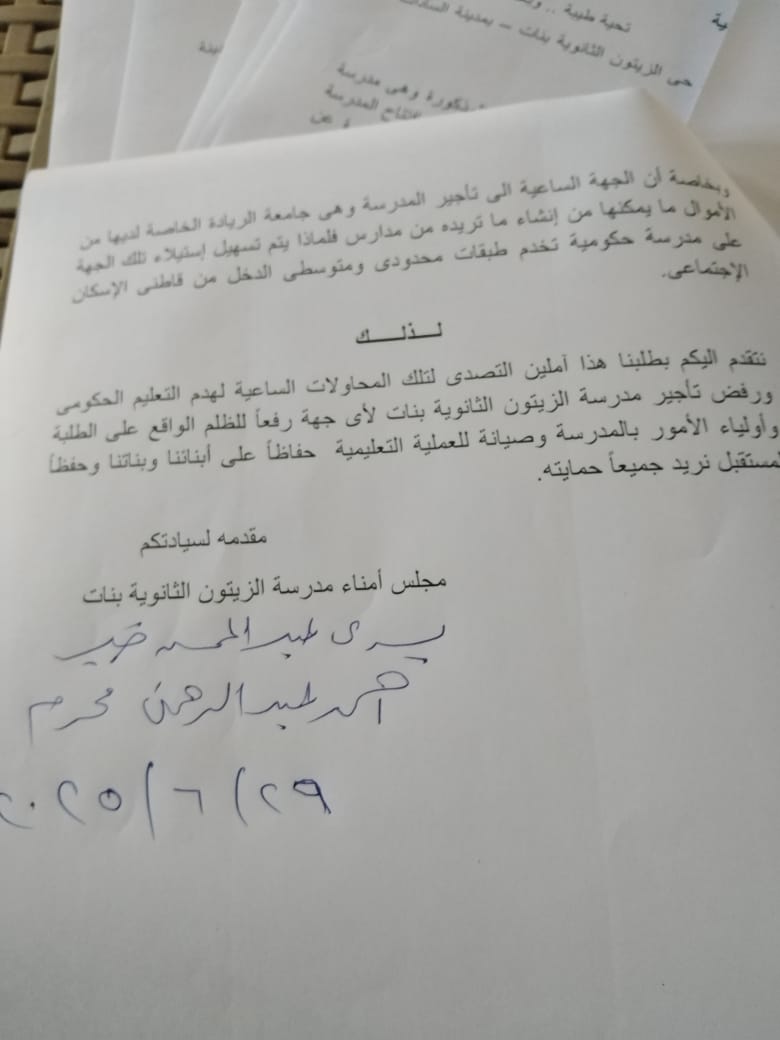 ية
تحية طيبة ..
حى الزيتون الثانوية بنات – بمدينة السادات
ينة
وهى مدرسة
المدرسة
عن
وبخاصة أن الجهة الساعية الى تأجير المدرسة وهى جامعة الريادة الخاصة لديها من
الأموال ما يمكنها من إنشاء ما تريده من مدارس فلماذا يتم تسهيل إستيلاء تلك الجهة
على مدرسة حكومية تخدم طبقات محدودى ومتوسطى الدخل من قاطنى الإسكان
الإجتماعى.
لــذلــــك
نتقدم اليكم بطلبنا هذا آملين التصدى لتلك المحاولات الساعية لهدم التعليم الحكومى
ورفض تأجير مدرسة الزيتون الثانوية بنات لأى جهة رفعاً للظلم الواقع على الطلبة
وأولياء الأمور بالمدرسة وصيانة للعملية التعليمية حفاظاً على أبنائنا وبناتنا وحفظاً
لمستقبل نريد جميعاً حمايته.
مقدمه لسيادتكم
مجلس أمناء مدرسة الزيتون الثانوية بنات
يسرى عبد المحسن
أحمد عبد الرحمن محرم
٢٠٢٥/٦/٢٩